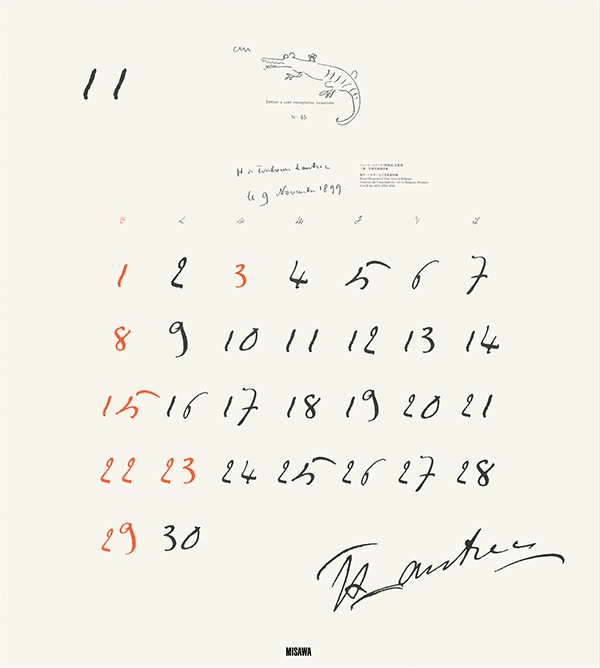 11
cm
Edition à cent exemplaires numérotés
Nº 45
H de Toulouse Lautrec
le 9 Novembre 1899
Royal Museums of Fine Arts of Belgium
D L M M J V S
1 2 3 4 5 6 7
8 9 10 11 12 13 14
15 16 17 18 19 20 21
22 23 24 25 26 27 28
29 30
HLautrec
MISAWA